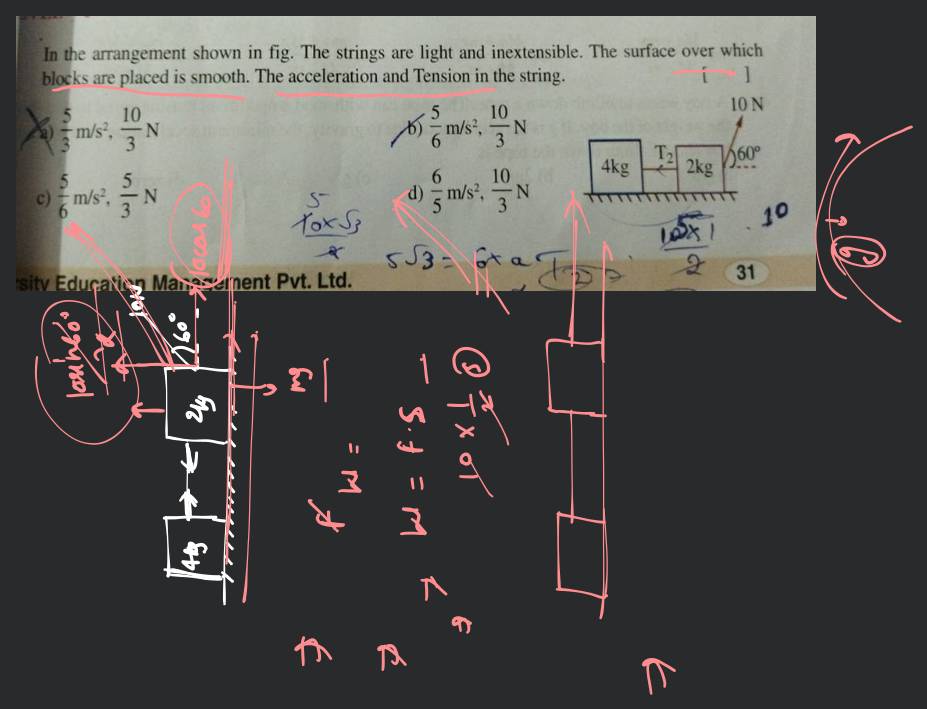 In the arrangement shown in fig. The strings are light and inextensible. The surface over which
blocks are placed is smooth. The acceleration and Tension in the string. [ ]
a) 5/3 m/s², 10/3 N
b) 5/6 m/s², 10/3 N
c) 5/6 m/s², 5/3 N
d) 6/5 m/s², 10/3 N
10 N
4kg T₂ 2kg 60°
5
10x√3
2
5√3 = 6x a
10x1
2
10
sity Education Management Pvt. Ltd. 31
10cos60
10sin60°
10N
60°
2kg
4kg
mg
W = f.s
W =
10 x 1/2